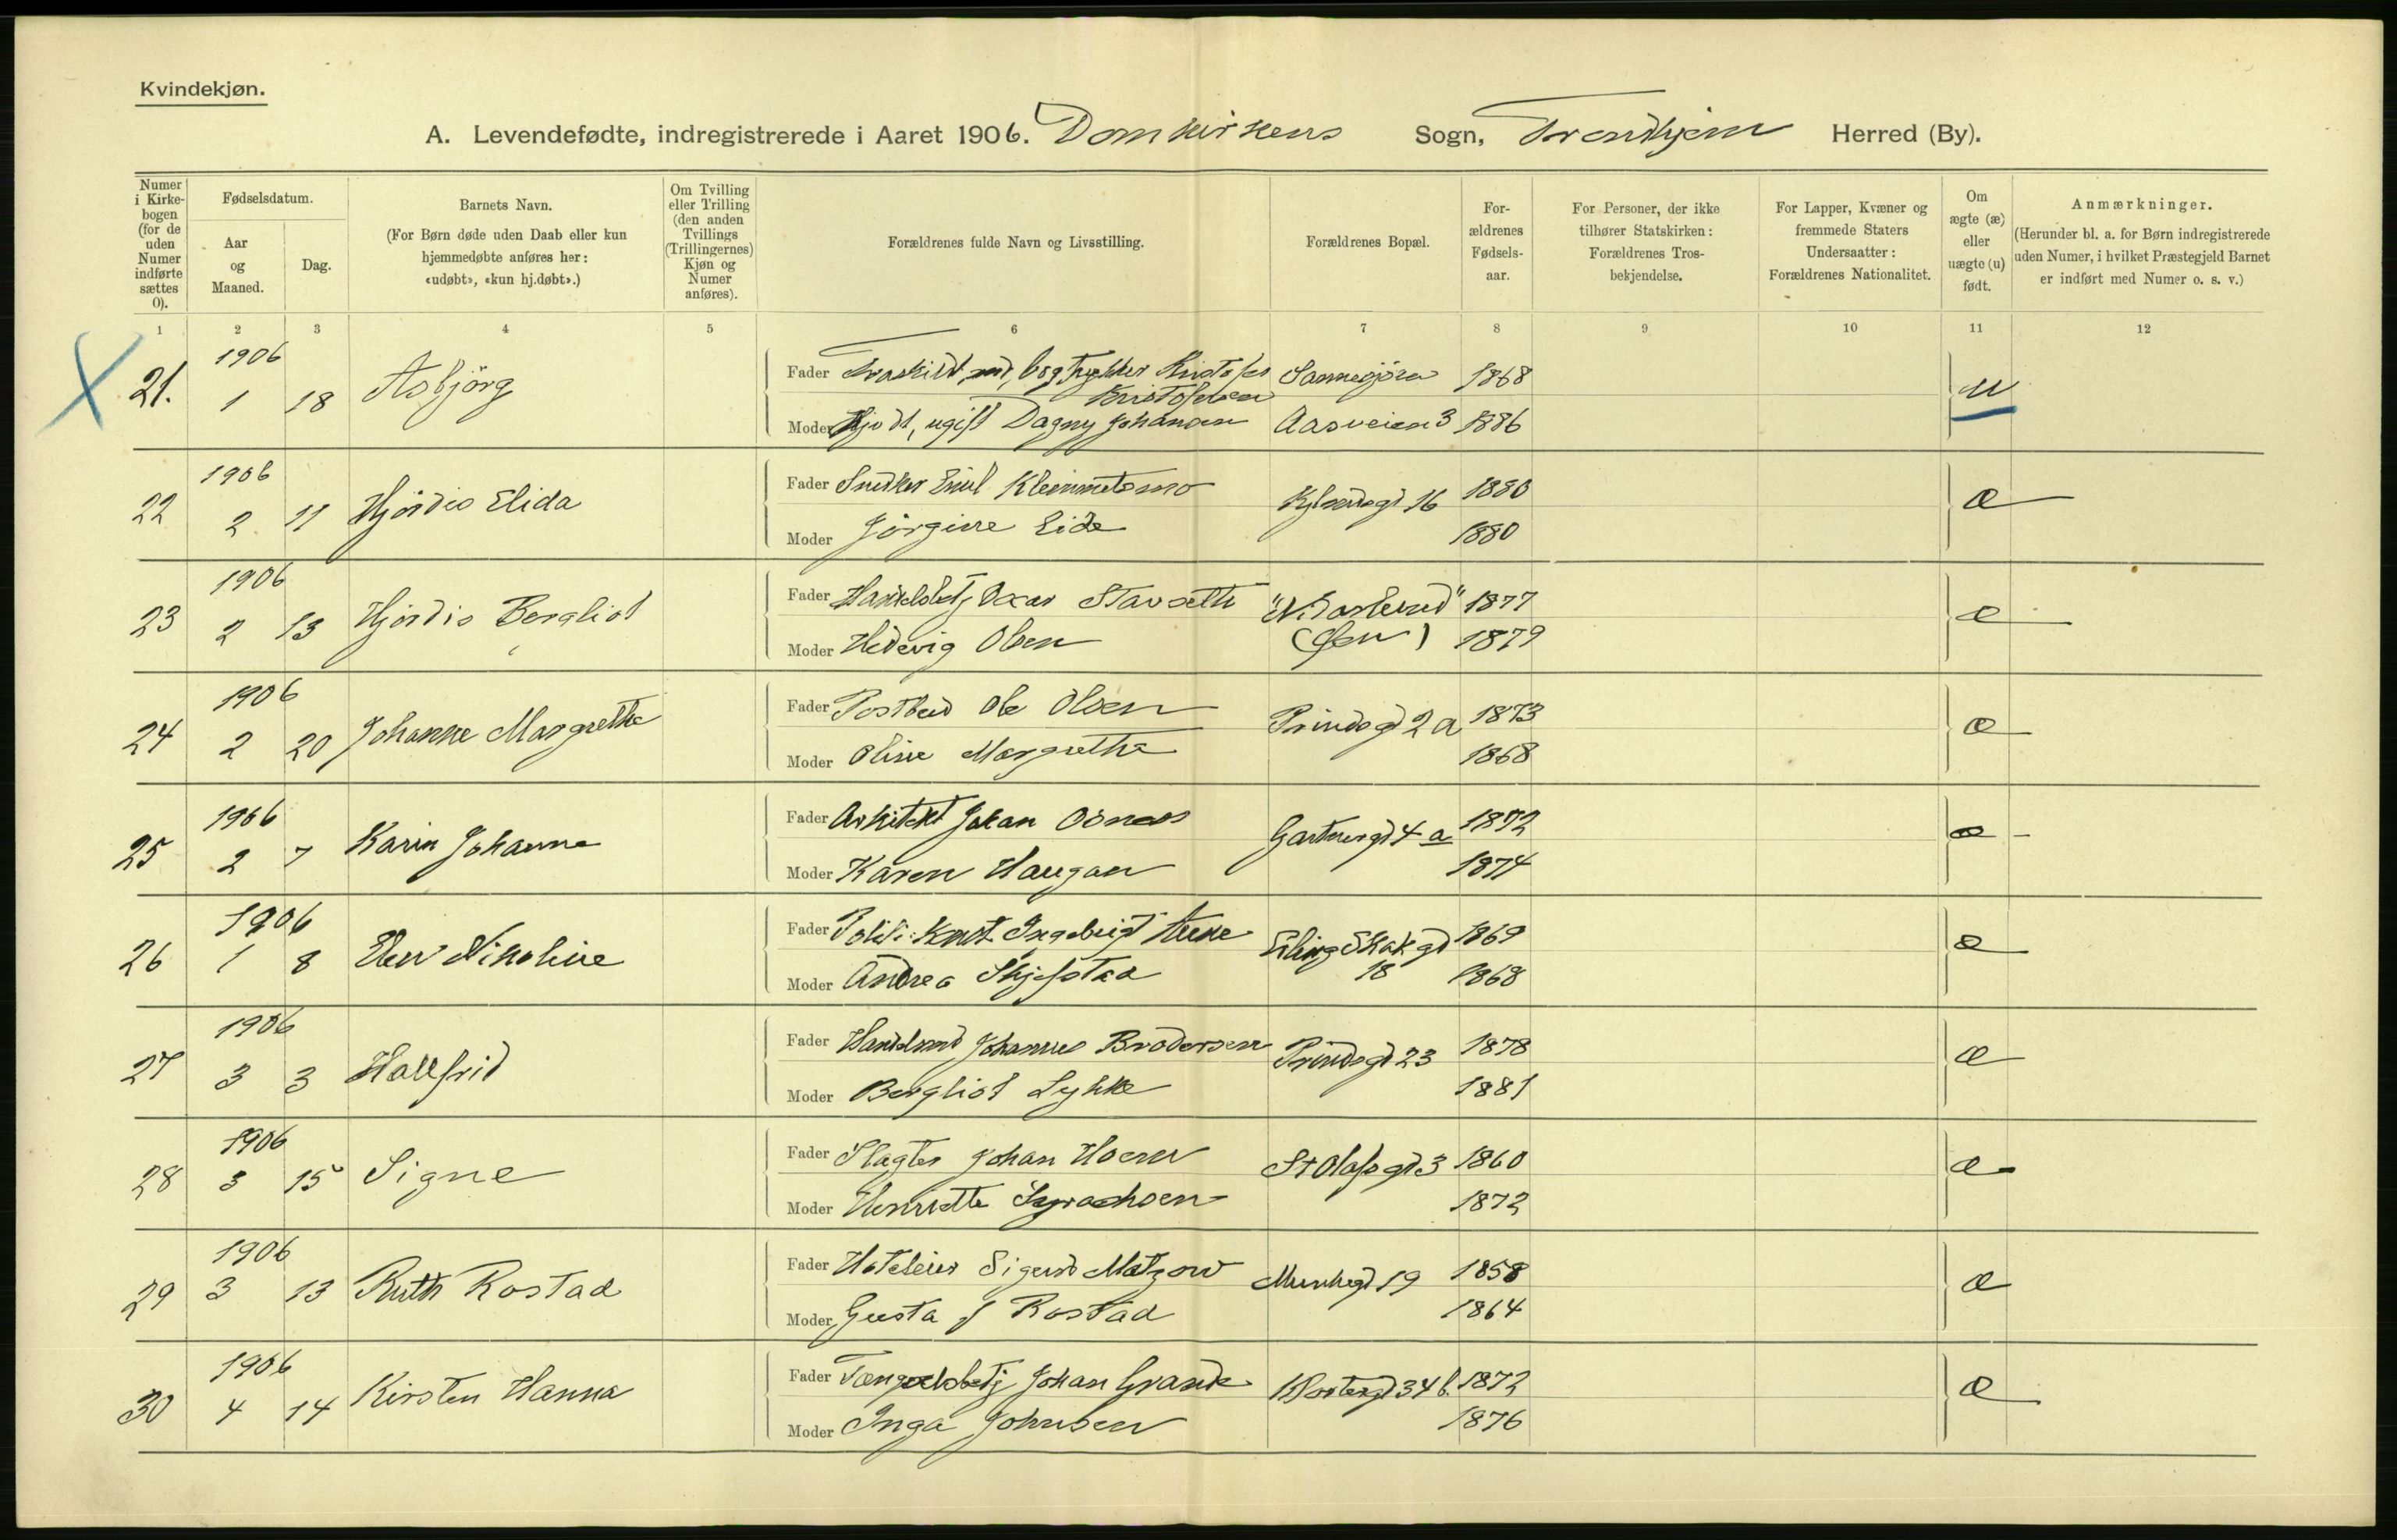 Kvindekjøn.
A. Levendefødte, indregistrerede i Aaret 1906. Domkirkens Sogn, Trondhjem Herred (By).
Numer i Kirke-bogen (for de uden Numer indførte sættes 0).
Fødselsdatum.
Aar og Maaned.
Dag.
Barnets Navn.
(For Børn døde uden Daab eller kun hjemmedøbte anføres her: «udøbt», «kun hj.døbt».)
Om Tvilling eller Trilling (den anden Tvillings (Trillingernes) Kjøn og Numer anføres).
Forældrenes fulde Navn og Livsstilling.
Forældrenes Bopæl.
For-ældrenes Fødsels-aar.
For Personer, der ikke tilhører Statskirken: Forældrenes Tros-bekjendelse.
For Lapper, Kvæner og fremmede Staters Undersaatter: Forældrenes Nationalitet.
Om ægte (æ) eller uægte (u) født.
Anmærkninger.
(Herunder bl. a. for Børn indregistrerede uden Numer, i hvilket Præstegjeld Barnet er indført med Numer o. s. v.)
1 2 3 4 5 6 7 8 9 10 11 12
21. 1906 1 18 Asbjörg
Fader Fraskilt Kristofer Kristofersen 1868 u
Moder ugift Dagny Johansen Aasveien 3 1886
22 1906 2 11 Hjördis Elida
Fader Snedker Emil Klemmetsmo 16 1880 æ
Moder Jörgine Eide 1880
23 1906 2 13 Hjördis Bergliot
Fader Handelsbetj Oscar Stavseth 1877 æ
Moder Hedevig Olsen 1879
24 1906 2 20 Johanne Margrethe
Fader Postbud Ole Olsen Prindsgd 2 a 1873 æ
Moder Oline Margrethe 1868
25 1906 2 7 Karin Johanna
Fader Arkitekt Johan Osness Gartnergd 4 a 1872 æ
Moder Karen Haugan 1874
26 1906 1 8 Ellen Nikoline
Fader Politi:Knst. Ingebrigt Aune Erling Skakgd 18 1869 æ
Moder Andrea Skjefstad 1868
27 1906 3 3 Hallfrid
Fader Handelsmd Johannes Brodersen Prindsgd 23 1878 æ
Moder Bergliot Lykke 1881
28 1906 3 15 Signe
Fader Slagter Johan Hoem St Olafsgd 3 1860 æ
Moder Henriette 1872
29 1906 3 13 Ruth Rostad
Fader Hoteleier Sigurd Matzow Munkegd 19 1858 æ
Moder Gusta J Rostad 1864
30 1906 4 14 Kirsten Hanna
Fader Fængselsbetj Johan Grande Klostergd 34 b. 1872 æ
Moder Inga Johnsen 1876